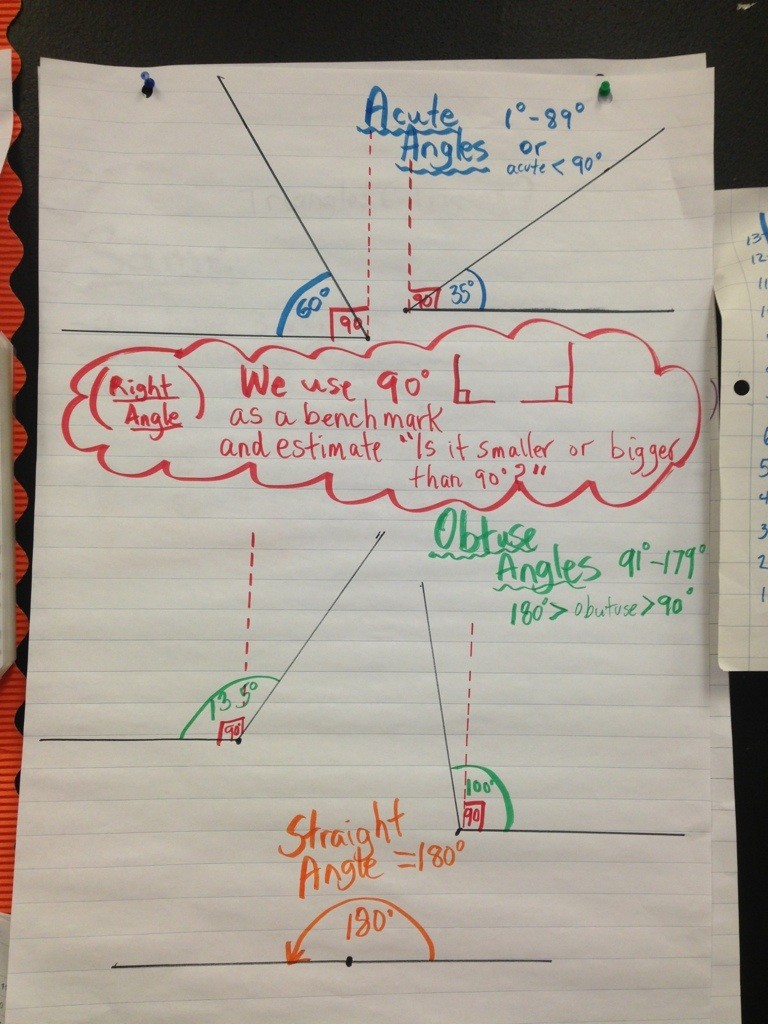 Acute 1°-89°
Angles or
acute < 90°
60°
90
90
35°
(Right
Angle)
We use 90°
as a benchmark
and estimate "Is it smaller or bigger
than 90°?"
Obtuse
Angles 91°-179°
180° > obutuse > 90°
135°
90°
100°
90
Straight
Angle = 180°
180°
13
12
11
5
4
3
2
1